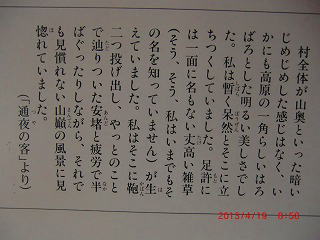 村全体が山奥といった暗い
じめじめした感じはなく、い
かにも高原の一角らしいほろ
ばろとした明るい美しさでし
た。私は暫く呆然とそこに立
ちつくしていました。足許に
は一面に名もない丈高い雑草
(そう、そう、私はいまでもそ
の名を知っていません)が生
えていました。私はそこに鞄
二つ投げ出し、やっとのこと
で辿りついた安堵と疲労で半
ばぐったりしながら、それで
も見慣れない山巓の風景に見
惚れていました。
(「通夜の客」より)
2013/4/19 8:50